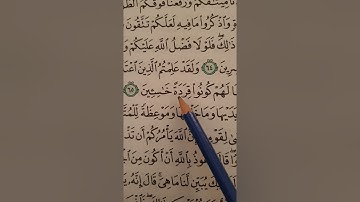 مِيثَٰقَكُمْ وَرَفَعْنَا فَوْقَكُمُ الط
وَاذْكُرُوا مَا فِيهِ لَعَلَّكُمْ تَتَّقُونَ
ذَٰلِكَ فَلَوْلَا فَضْلُ اللَّهِ عَلَيْكُمْ وَ
سِرِينَ ٦٤ وَلَقَدْ عَلِمْتُمُ الَّذِينَ اعْتَ
ا لَهُمْ كُونُوا قِرَدَةً خَٰسِـِٔينَ ٦٥
يَدَيْهَا وَمَا خَلْفَهَا وَمَوْعِظَةً لِّلْمُتَّ
لِقَوْمِهِ إِنَّ اللَّهَ يَأْمُرُكُمْ أَن تَذ
قَالَ أَعُوذُ بِاللَّهِ أَنْ أَكُونَ مِنَ ا
يُبَيِّن لَّنَا مَا هِيَ قَالَ إِنَّهُ ي